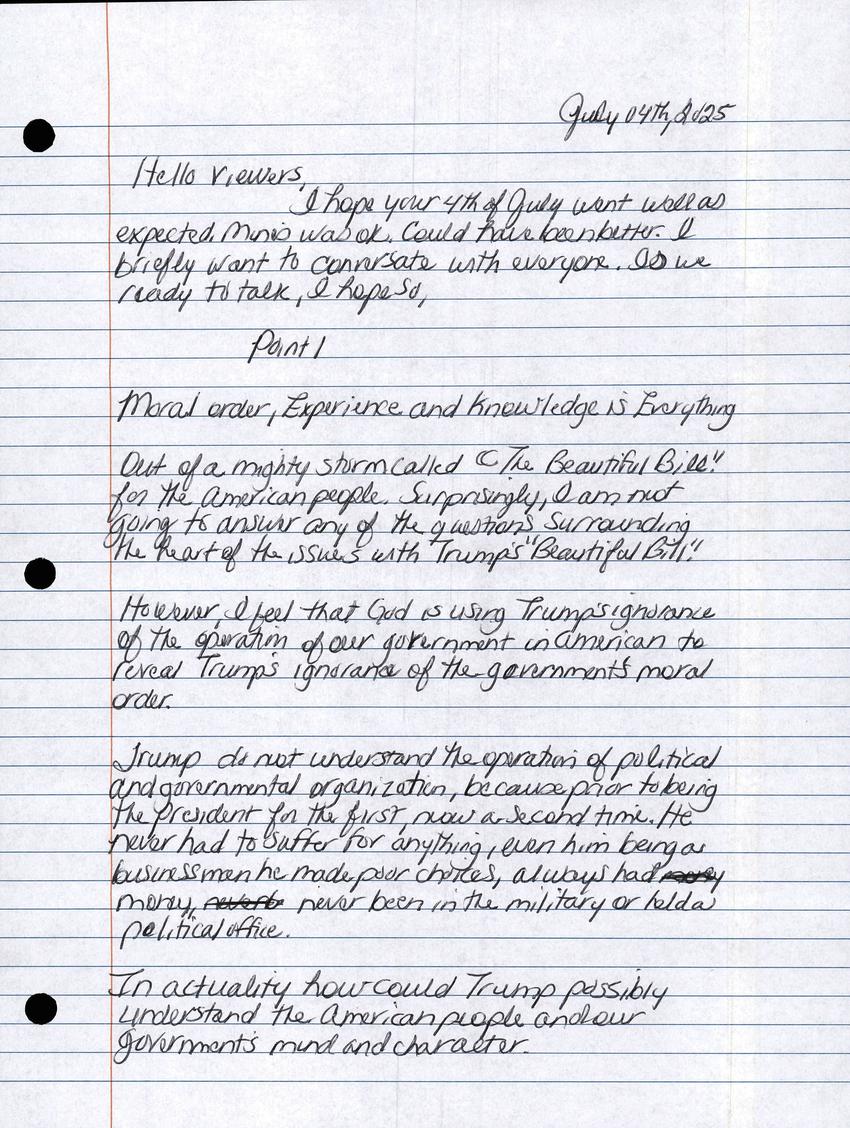 July 04th, 2025
Hello Viewers,
I hope your 4th of July went well as
expected. Mines was ok. Could have been better. I
briefly want to conversate with everyone. Is we
ready to talk, I hope so,
Point 1
Moral order, Experience and Knowledge is Everything
Out of a mighty storm called "The Beautiful Bill"
for the American people. Surprisingly, I am not
going to answer any of the questions surrounding
the heart of the issues with Trump's "Beautiful Bill"
However, I feel that God is using Trump's ignorance
of the operation of our government in American to
reveal Trump's ignorance of the government's moral
order.
Trump do not understand the operation of political
and governmental organization, because prior to being
the president for the first, now a second time. He
never had to suffer for anything, even him being as
businessman he made poor choices, always had
money, never been in the military or held a
political office.
In actuality how could Trump possibly
understand the American people and our
government's mind and character.